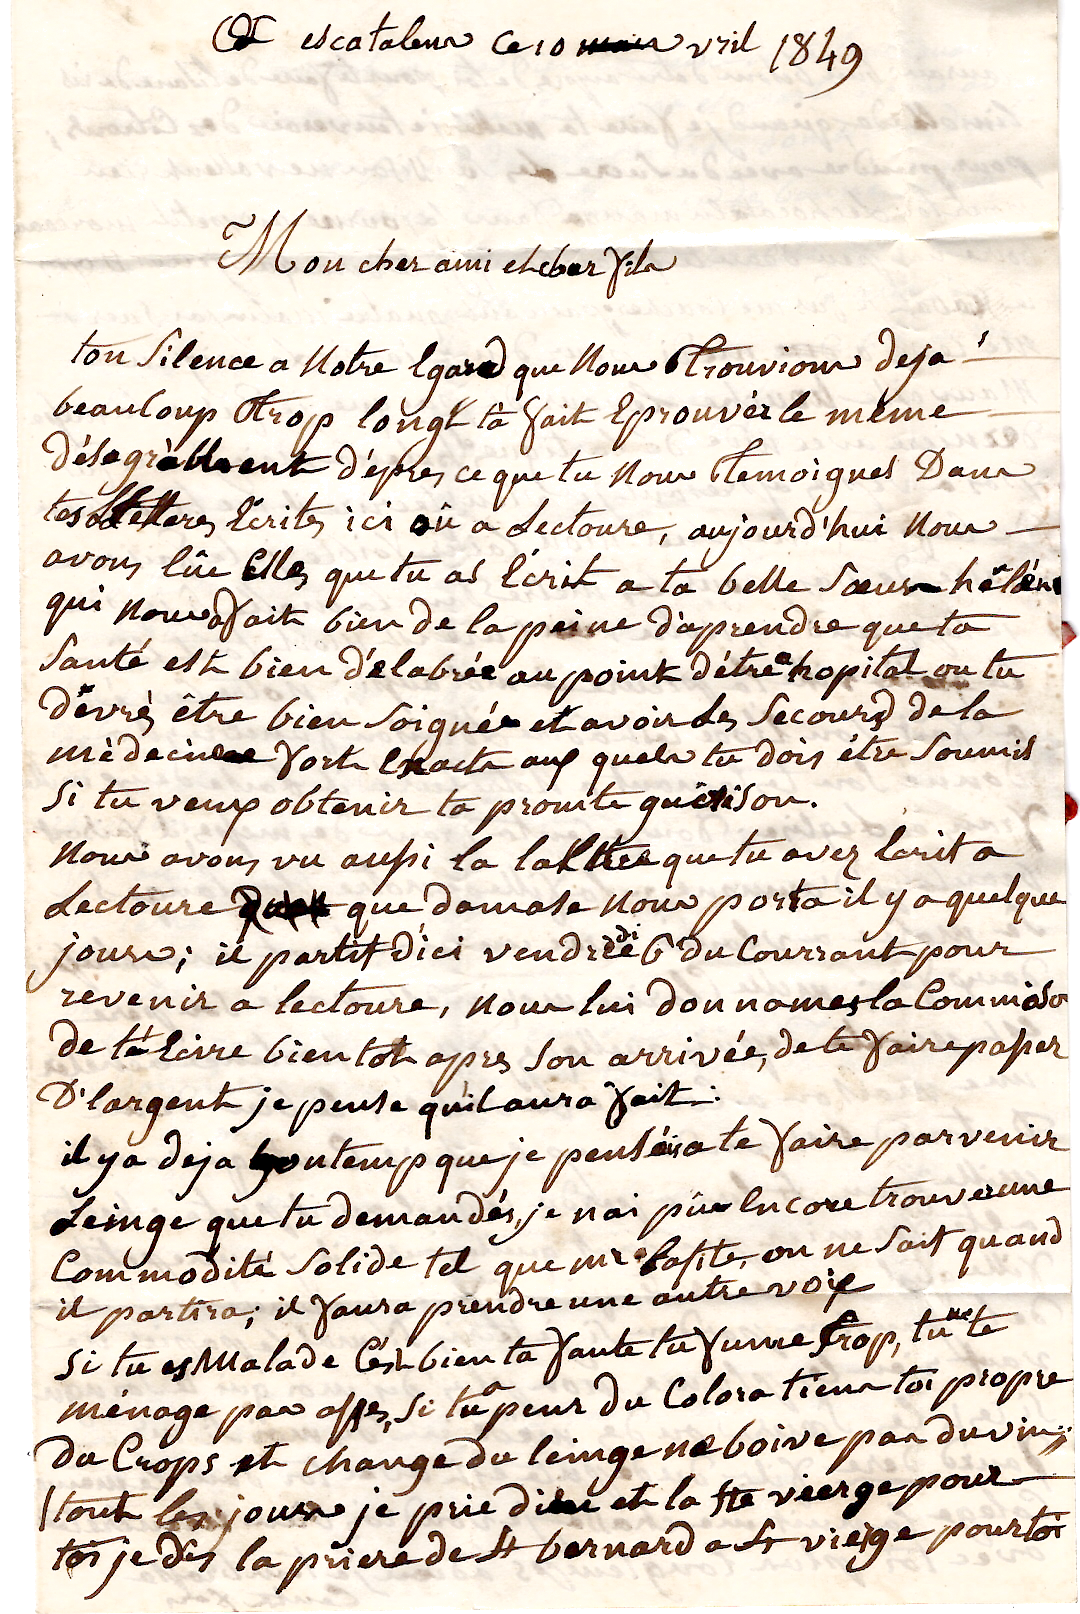 escatalens ce 10 vril 1849
Mon cher ami et cher fils
ton silence a notre Egard que nous trouvions deja
beaucoup trop longt t'a fait Eprouvér le même
désagrèment d'épres ce que tu nous temoignes Dans
tes Lettres Ecrites ici oû a Lectoure, aujourd'hui nous
avons lûe Elles que tu as Ecrit a ta belle sœur hélène
qui nous a fait bien de la peine d'aprendre que ta
santé est bien délabrée au point d'étre a hopital ou tu
dévrès être bien soignée et avoir Les secours de la
mèdecine fort Exacts aux quels tu dois étre soumis
si tu veux obtenir ta promte guérison.
nous avons vu aussi la lattre que tu avez Ecrit a
Lectoure que damase nous porta il y a quelque
jours; il partit d'ici vendredi 6 du Courrant pour
revenir a lectoure, nous lui donnames la Commiso
de t'é Ecrire bientot apres son arrivée, de te faire passer
D'largent je pense qu'il aura fait.
il ya deja lontemp que je pensèis a te faire parvenir
Leinge que tu demandés, je nai pûe Encore trouver une
Commodité solide tel que mr lafite, on ne sait quand
il partira; il faura prendre une autre voix
si tu es Malade C'ést bien ta faute tu fume trop, tu ne te
ménage pas asses, si tu a peur du Colora tiens toi propre
du Crops et change du leinge ne boive pas du vin;
tout les jours je prie dieu et la ste vierge pour
toi je dis la priere de st bernard a st vierge pour toi